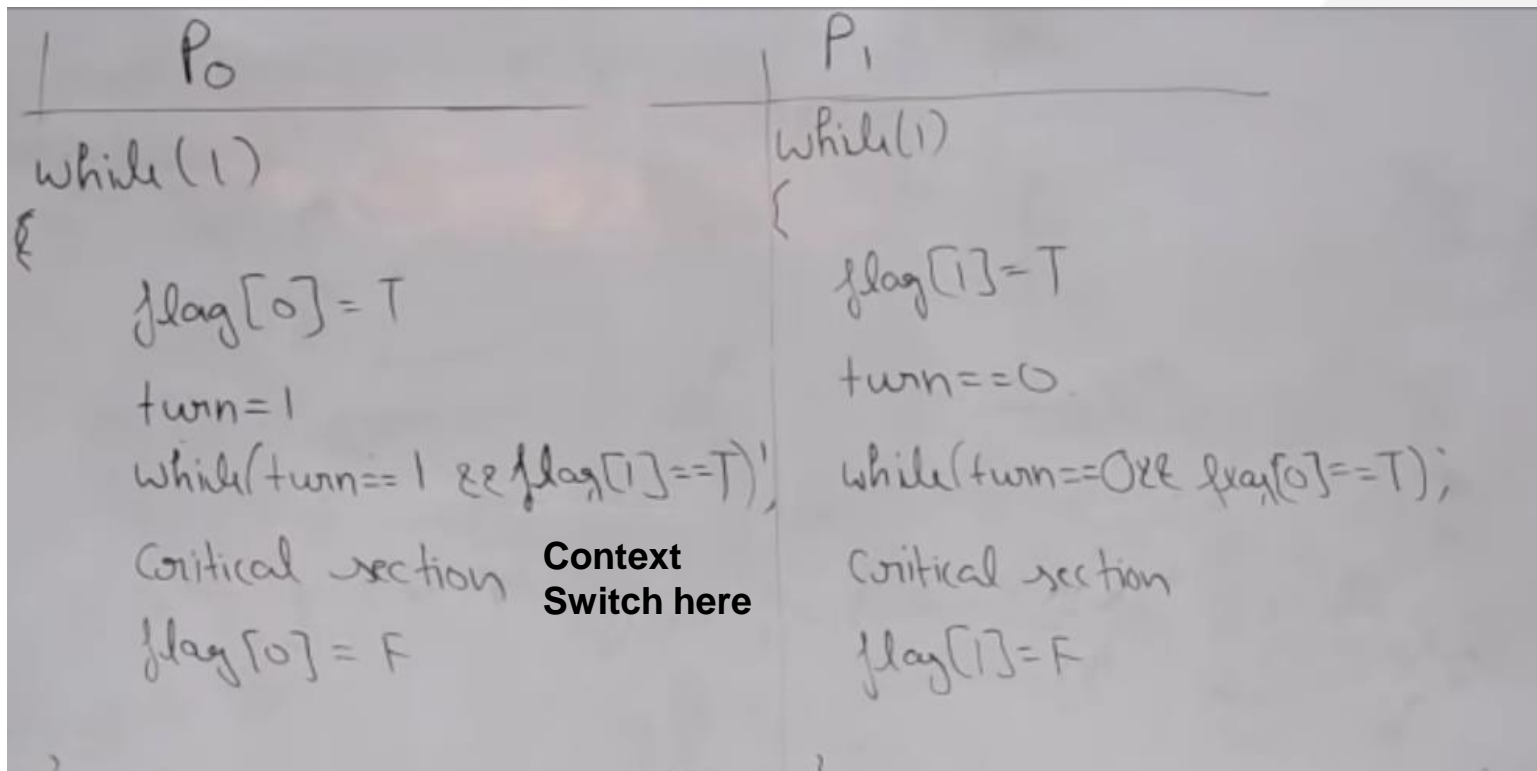 P0
while(1)
{
flag[0]=T
turn=1
while(turn==1 && flag[1]==T);
Critical section
flag[0]=F
}
Context
Switch here
P1
while(1)
{
flag[1]=T
turn==0
while(turn==0&& flag[0]==T);
Critical section
flag[1]=F
}